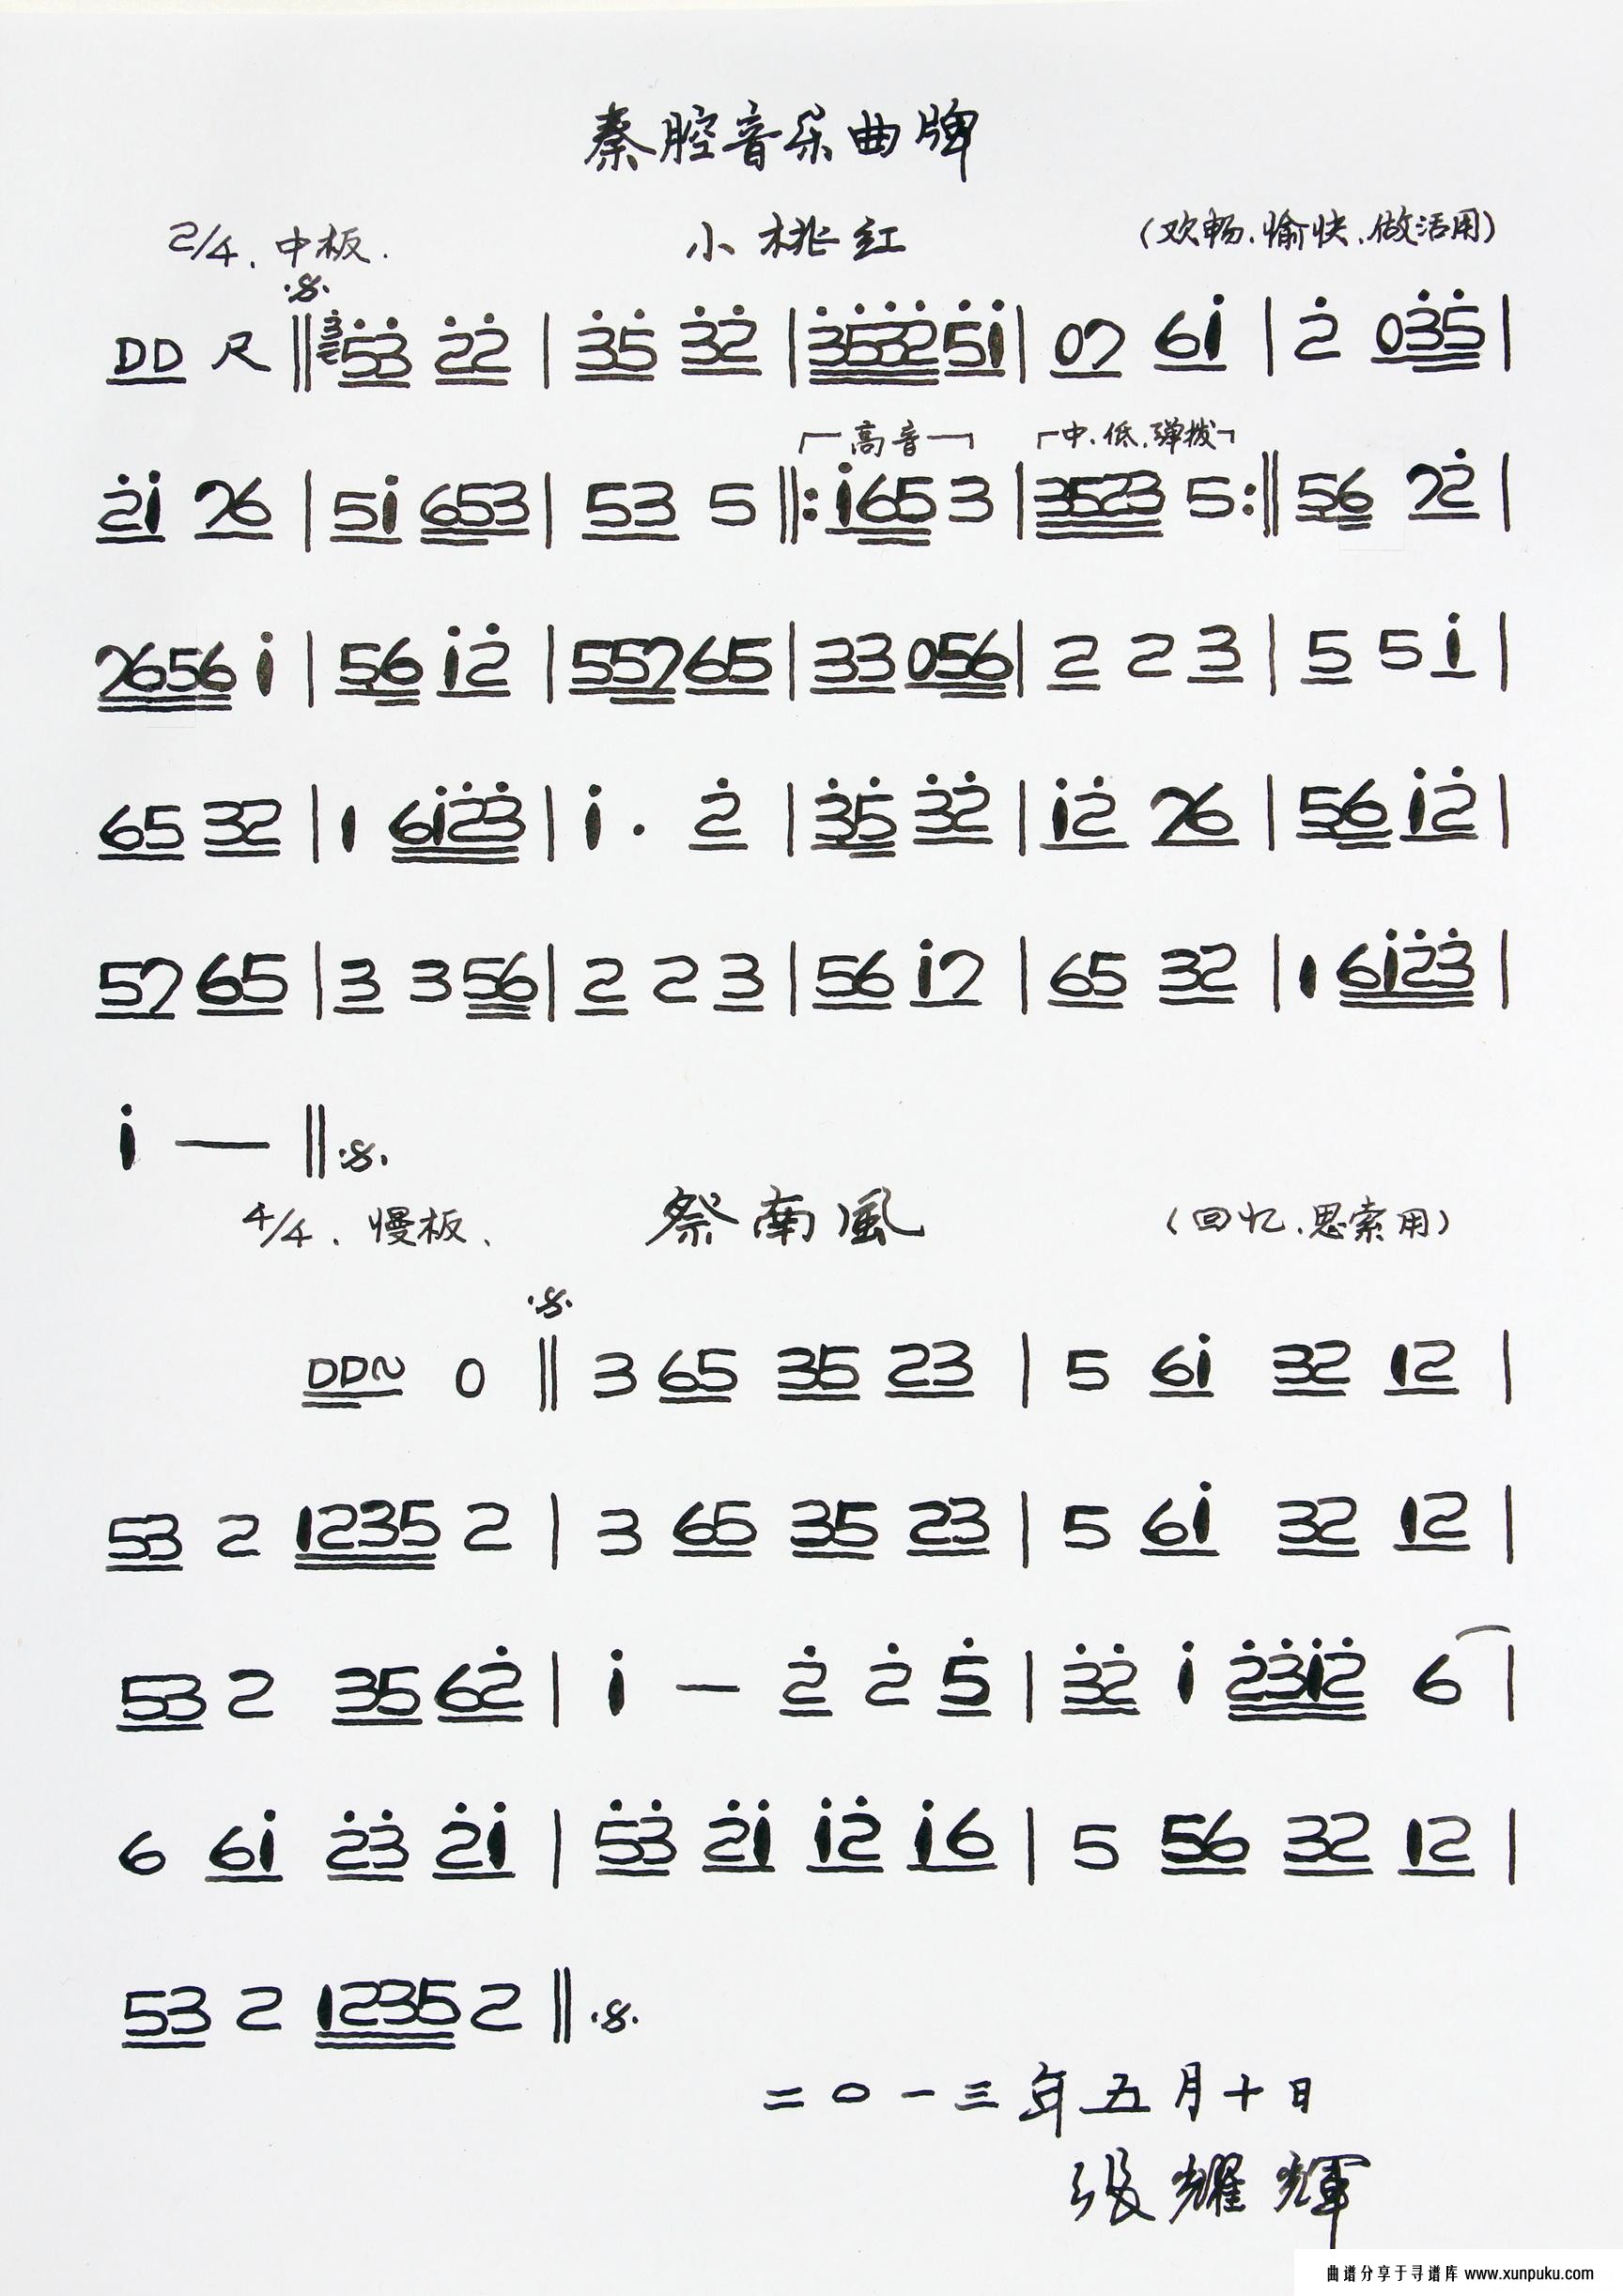 秦腔音乐曲牌
2/4、中板. 小桃红 (欢畅、愉快、做活用)
·𝄋·
DD 尺 ‖ 5̇3̇ 2̇2̇ | 3̇5̇ 3̇2̇ | 3̇5̇3̇2̇ 5̇i | 07 6i | 2̇ 03̇5̇ |
高音 中.低.弹拨
2̇i 76 | 5i 653 | 53 5 ‖: i65 3 | 3523 5 :‖ 56 72̇ |
7656 i | 56 i2̇ | 557 65 | 33 056 | 2 2 3 | 5 5 i |
65 32 | 1 6i2̇3̇ | i · 2̇ | 3̇5̇ 3̇2̇ | i2̇ 76 | 56 i2̇ |
57 65 | 3 3 56 | 2 2 3 | 56 i7 | 65 32 | 1 6i2̇3̇ |
i — ‖ ·𝄋·
4/4、慢板、 祭南風 (回忆、思索用)
·𝄋·
DD~ 0 ‖ 3 65 35 23 | 5 6i 32 12 |
53 2 1235 2 | 3 65 35 23 | 5 6i 32 12 |
53 2 35 62̇ | i — 2̇ 2̇ 5̇ | 3̇2̇ i 2̇3̇i2̇ 6 |
6 6i 2̇3̇ 2̇i | 5̇3̇ 2̇i i2̇ i6 | 5 56 32 12 |
53 2 1235 2 ‖ ·𝄋·
二〇一三年五月十日
張耀輝
曲谱分享于寻谱库 www.xunpuku.com